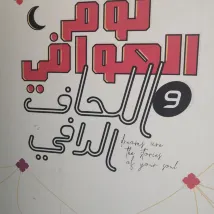 نوم
العوافي
و اللحاف
الدافي
dreams are
the stories
of your soul